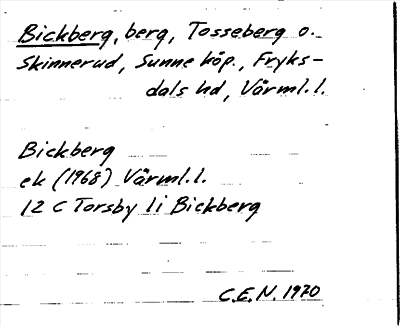 Bickberg, berg, Tosseberg o.
Skinnerud, Sunne köp., Fryks-
dals hd, Värml.l.
Bickberg
ek (1968) Värml.l.
12 C Torsby 1i Bickberg
C.E.N. 1970